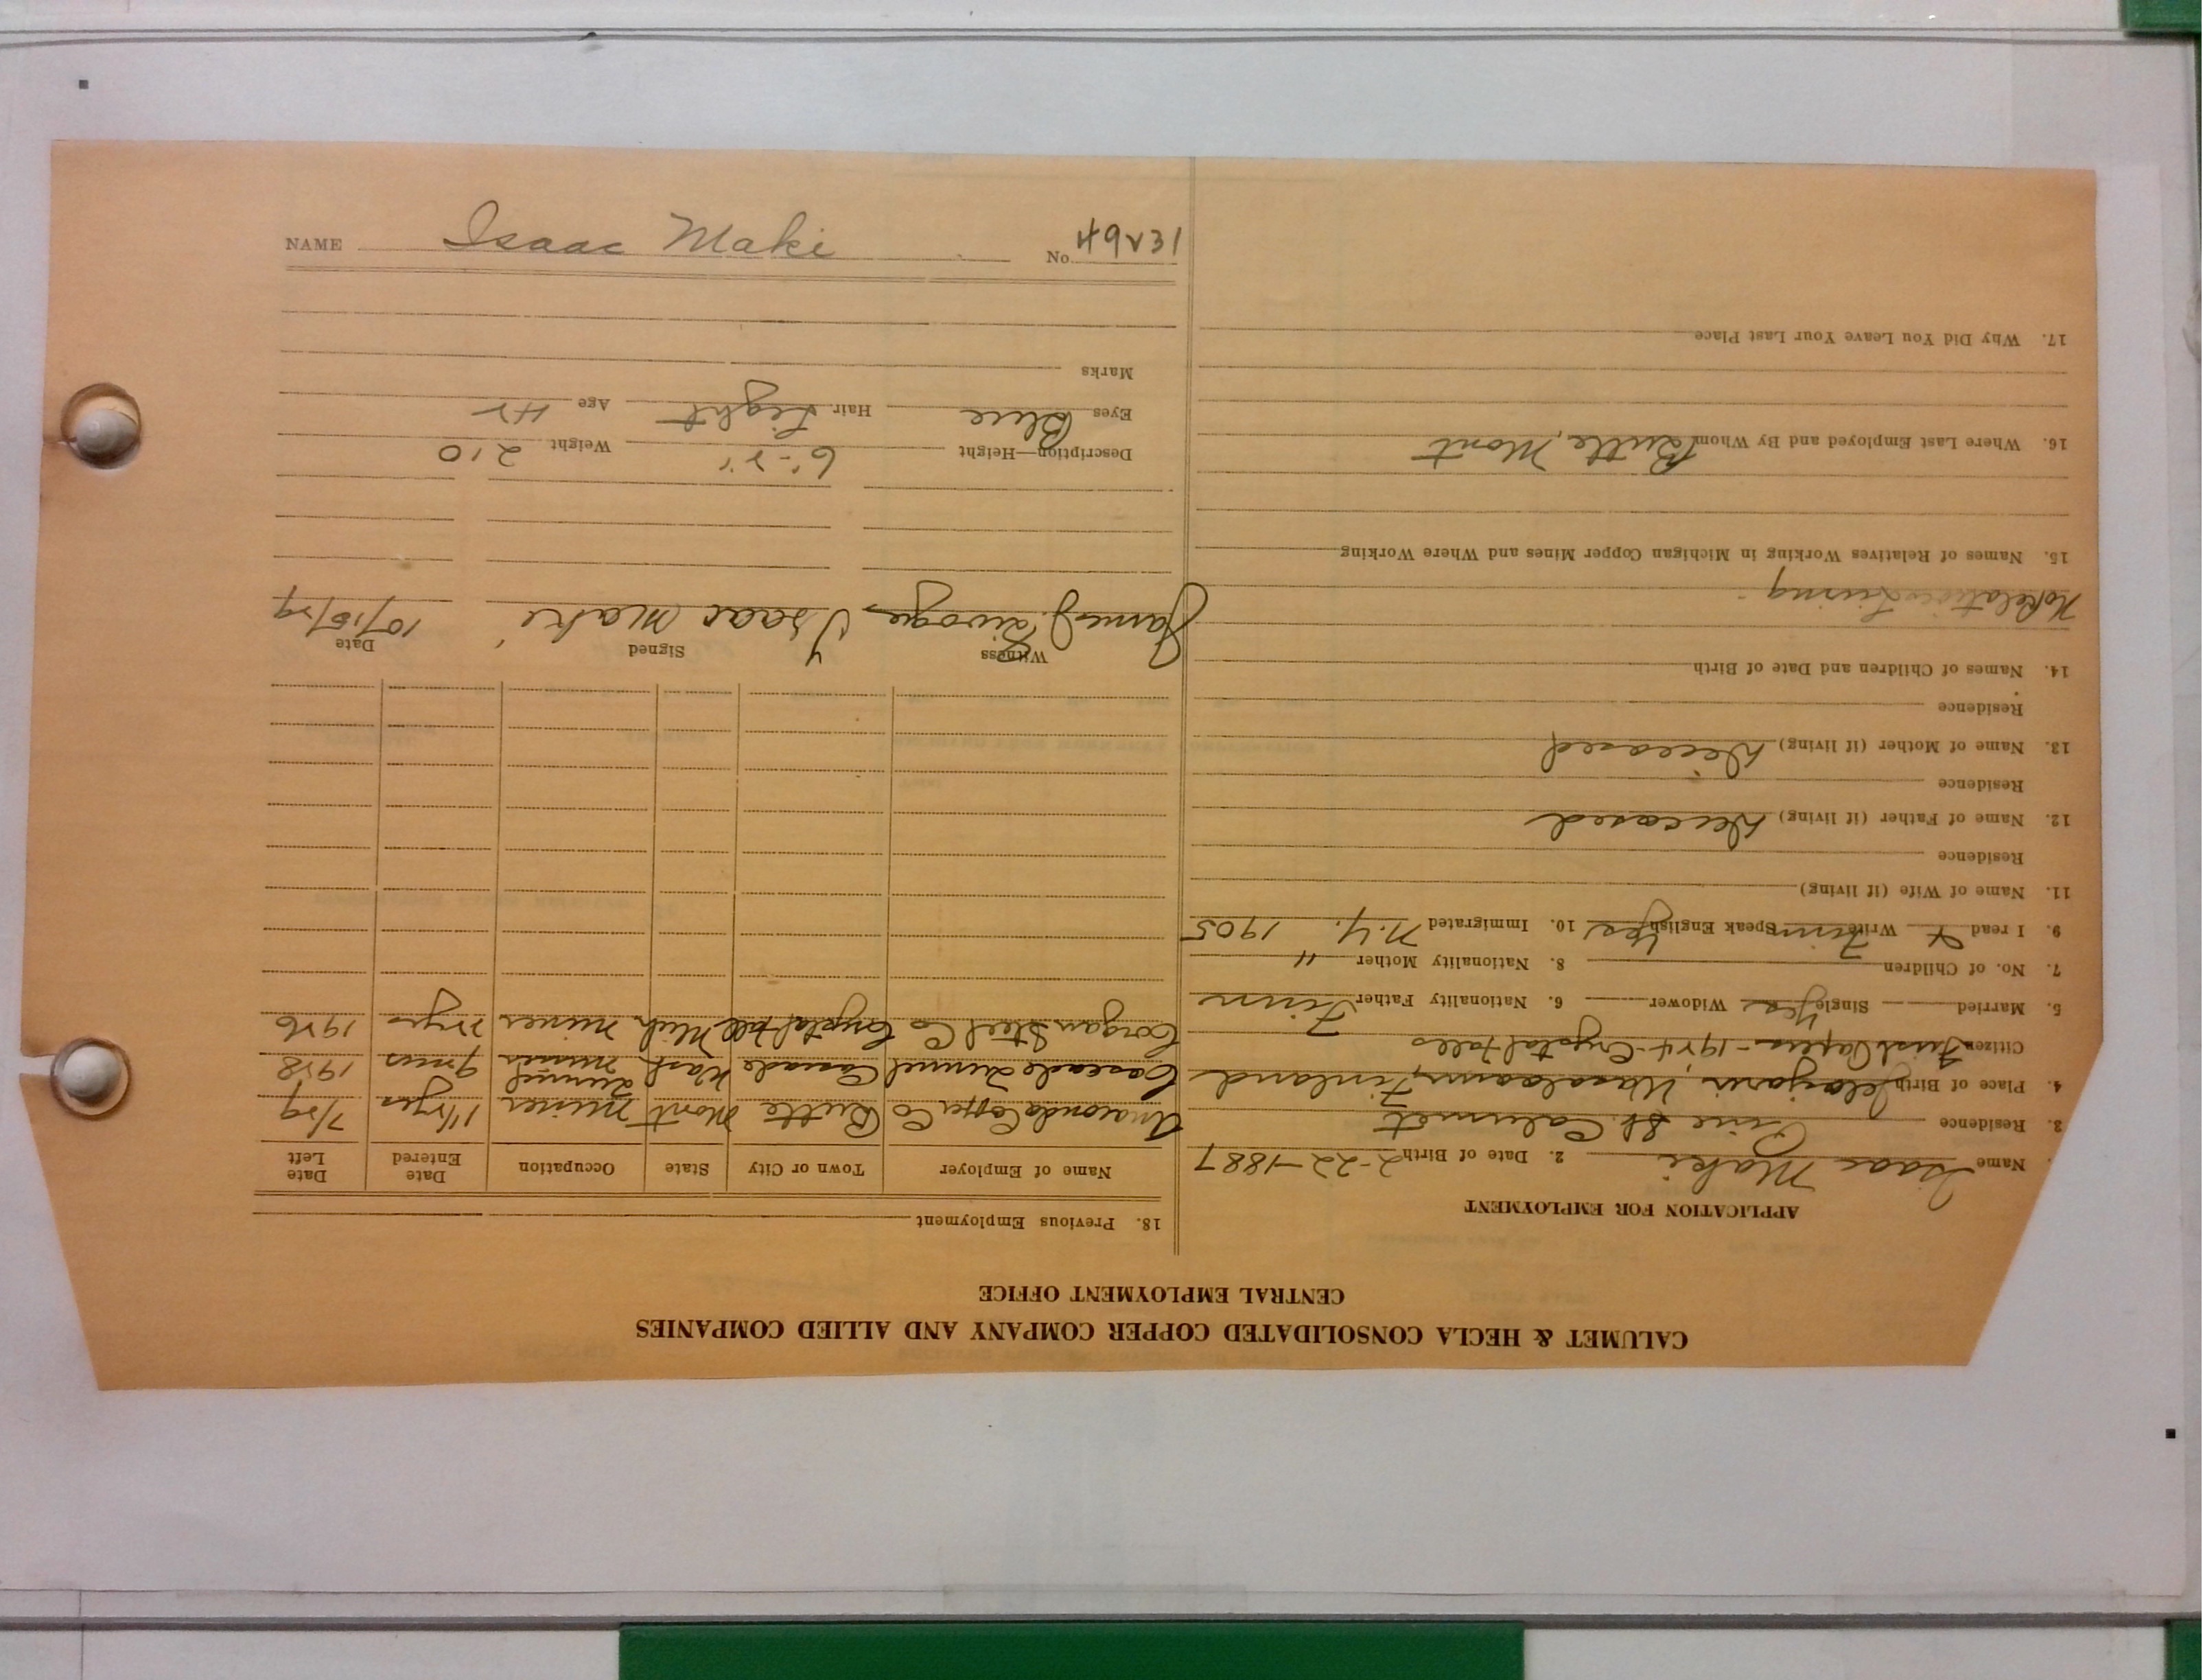 NAME Isaac Maki No. 49231
CALUMET & HECLA CONSOLIDATED COPPER COMPANY AND ALLIED COMPANIES
CENTRAL EMPLOYMENT OFFICE
APPLICATION FOR EMPLOYMENT
Name Isaac Maki 2. Date of Birth 2-22-1887
3. Residence Pine St. Calumet
4. Place of Birth Finland
Citizen First Papers - 1924 - Crystal Falls
5. Married Single Yes Widower 6. Nationality Father Finn
7. No. of Children 8. Nationality Mother "
9. I read & Write Finn Speak English Yes 10. Immigrated N.Y. 1905
11. Name of Wife (if living)
Residence
12. Name of Father (if living) Deceased
Residence
13. Name of Mother (if living) Deceased
Residence
14. Names of Children and Date of Birth
No Relatives Living
15. Names of Relatives Working in Michigan Copper Mines and Where Working
16. Where Last Employed and By Whom Butte, Mont
17. Why Did You Leave Your Last Place
18. Previous Employment
Name of Employer Town or City State Occupation Date Entered Date Left
Anaconda Copper Co Butte Mont miner 1½ yrs 7/29
Cascade Tunnel Cascade Wash Tunnel miner 9 mos 1928
Corgan Steel Co Crystal Fall Mich miner 2 yrs 1926
Witness Signed Date
James J. Isaac Maki 10/15/29
Description—Height 6'-2" Weight 210
Eyes Blue Hair Light Age 42
Marks